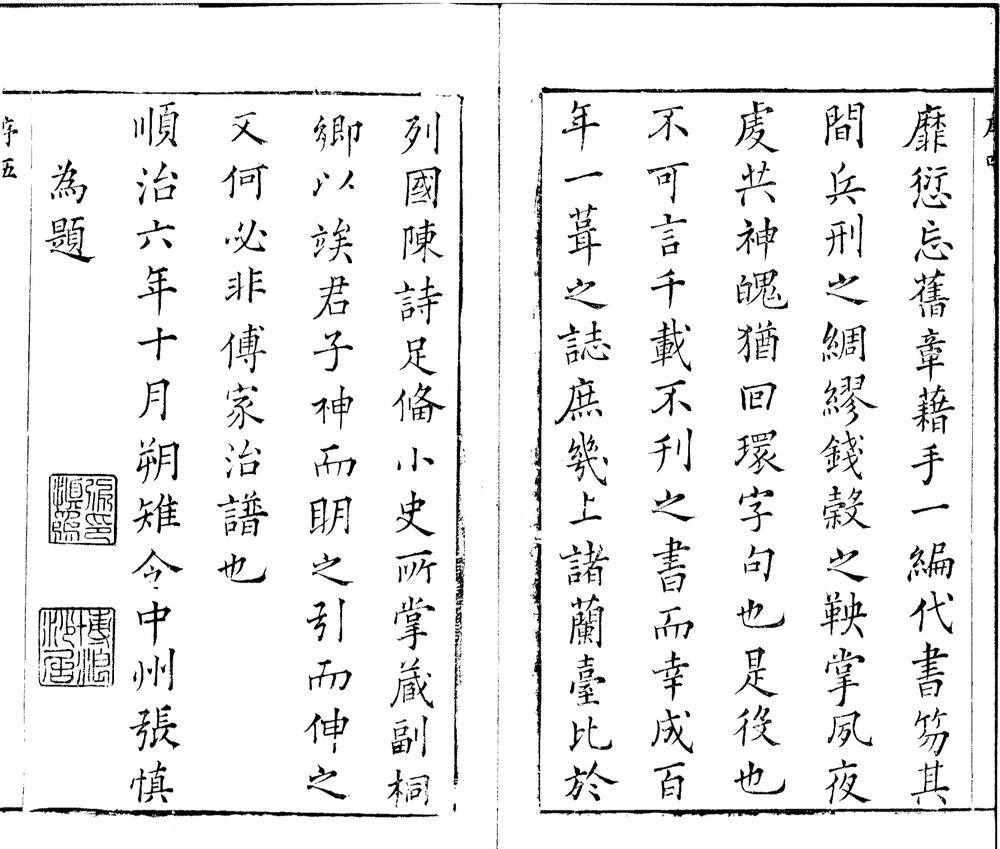 靡愆忘舊章藉手一編代書笏其
間兵刑之綢繆錢穀之鞅掌夙夜
虔共神魄猶回環字句也是役也
不可言千載不刋之書而幸成百
年一葺之誌庶幾上諸蘭臺比於
列國陳詩足俻小史所掌蔵副桐
鄉以竢君子神而眀之引而伸之
又何必非傅家治譜也
順治六年十月朔雉令中州張慎
為題
序五